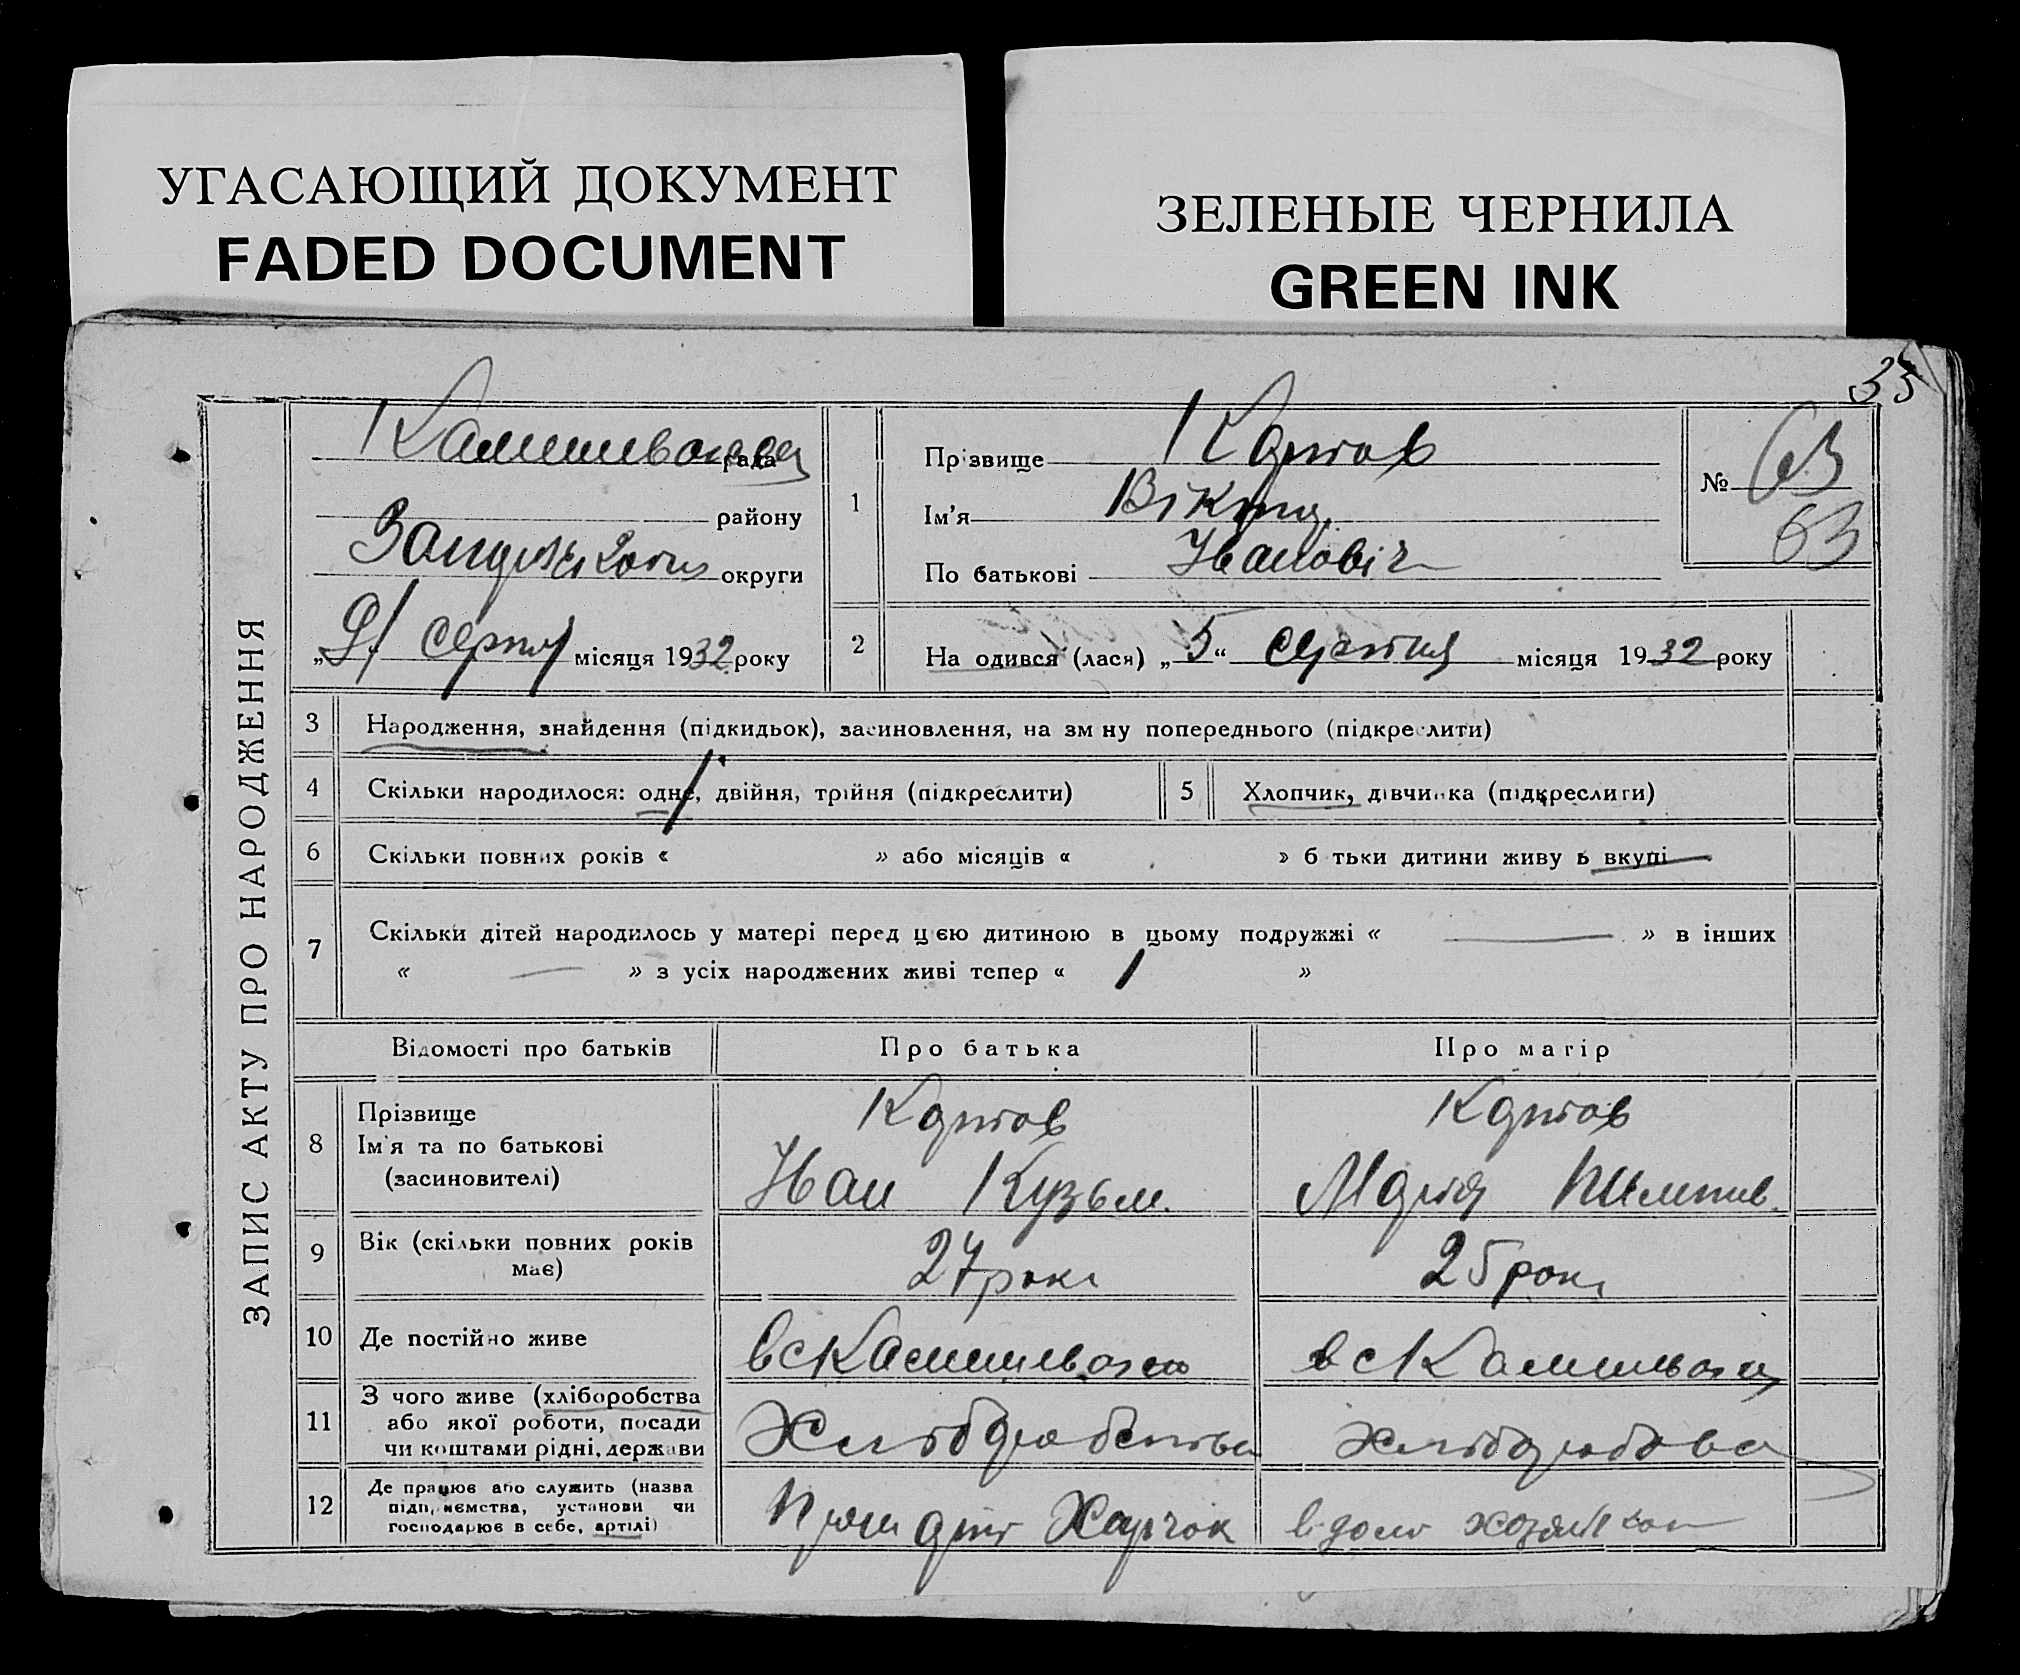 УГАСАЮЩИЙ ДОКУМЕНТ
FADED DOCUMENT
ЗЕЛЕНЫЕ ЧЕРНИЛА
GREEN INK
35
ЗАПИС АКТУ ПРО НАРОДЖЕННЯ
рада
району
округи
„9“ серпня місяця 1932 року
1
Прізвище Картав
Ім'я Віктор
По батькові Іванович
№ 63
63
2 На одився (лася) „5“ серпня місяця 1932 року
3 Народження, знайдення (підкидьок), засиновлення, на зм ну попереднього (підкреслити)
4 Скільки народилося: одне, двійня, трійня (підкреслити)
5 Хлопчик, дівчинка (підкреслити)
6 Скільки повних років « » або місяців « » б тьки дитини живу ь вкупі
7 Скільки дітей народилось у матері перед цією дитиною в цьому подружжі « — » в інших
« — » з усіх народжених живі тепер « 1 »
Відомості про батьків Про батька Про матір
8 Прізвище
Ім'я та по батькові
(засиновителі)
Картав
Иван Кузьм.
Картав
Мария
9 Вік (скільки повних років
має)
27 рокі
25 рокі
10 Де постійно живе
в с
в с
11 З чого живе (хліборобства
або якої роботи, посади
чи коштами рідні, держави
Хліборобства
12 Де працює або служить (назва
підприємства, установи чи
господарює в себе, артілі)
Харчок
в дома